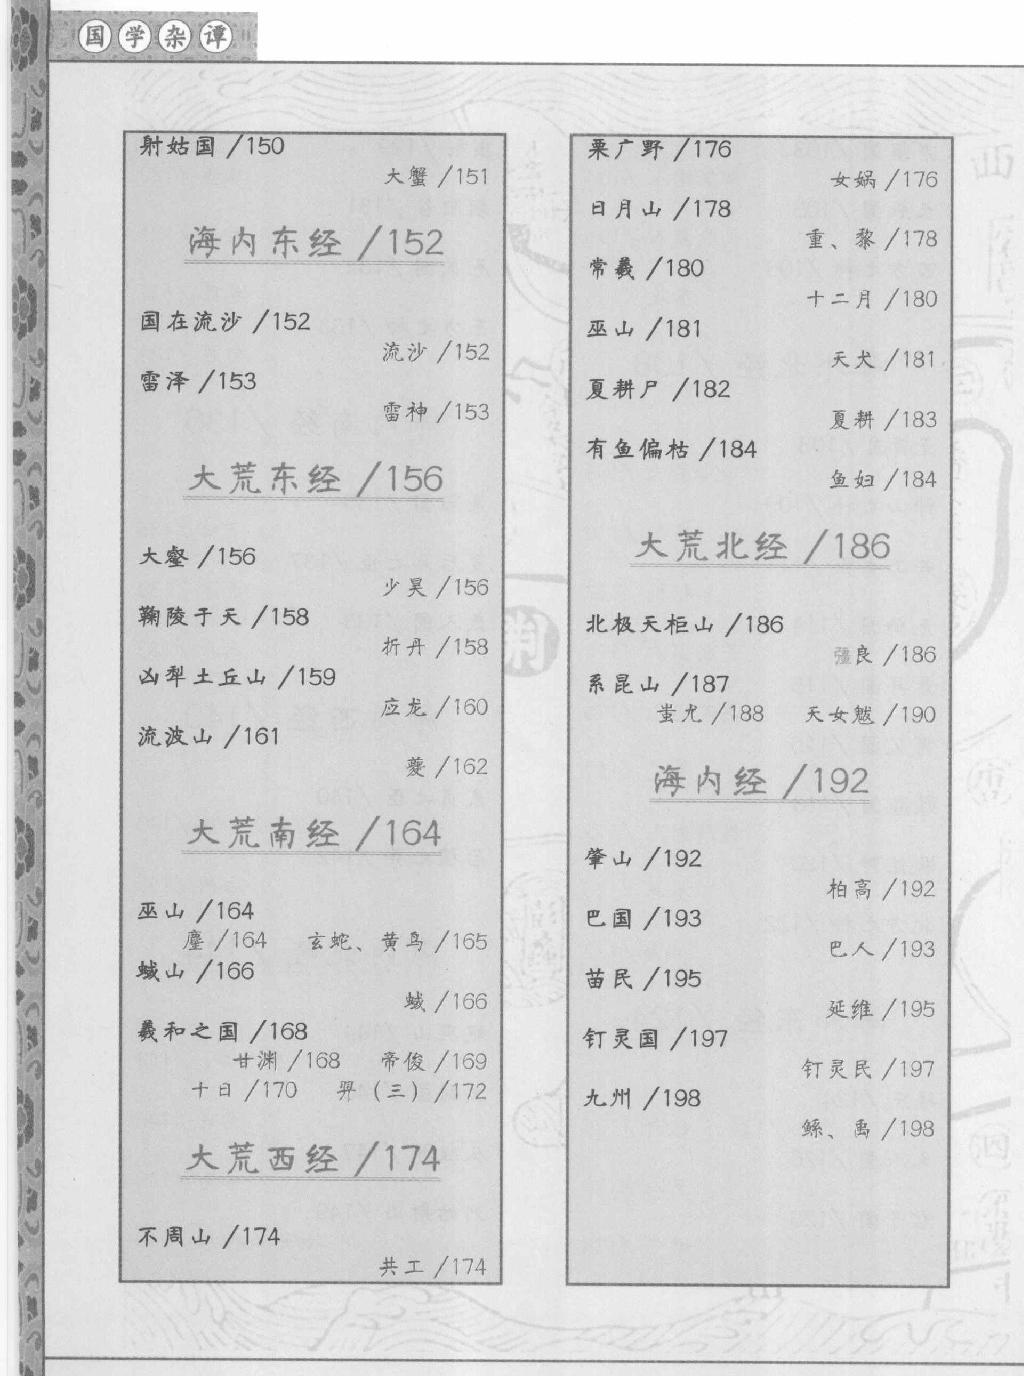 国学杂谭
射姑国 /150
大蟹 /151
海内东经 /152
国在流沙 /152
流沙 /152
雷泽 /153
雷神 /153
大荒东经 /156
大壑 /156
少昊 /156
鞠陵于天 /158
折丹 /158
凶犁土丘山 /159
应龙 /160
流波山 /161
夔 /162
大荒南经 /164
巫山 /164
麈 /164 玄蛇、黄鸟 /165
蜮山 /166
蜮 /166
羲和之国 /168
甘渊 /168 帝俊 /169
十日 /170 羿（三）/172
大荒西经 /174
不周山 /174
共工 /174
栗广野 /176
女娲 /176
日月山 /178
重、黎 /178
常羲 /180
十二月 /180
巫山 /181
天犬 /181
夏耕尸 /182
夏耕 /183
有鱼偏枯 /184
鱼妇 /184
大荒北经 /186
北极天柜山 /186
彊良 /186
系昆山 /187
蚩尤 /188 天女魃 /190
海内经 /192
肇山 /192
柏高 /192
巴国 /193
巴人 /193
苗民 /195
延维 /195
钉灵国 /197
钉灵民 /197
九州 /198
鲧、禹 /198